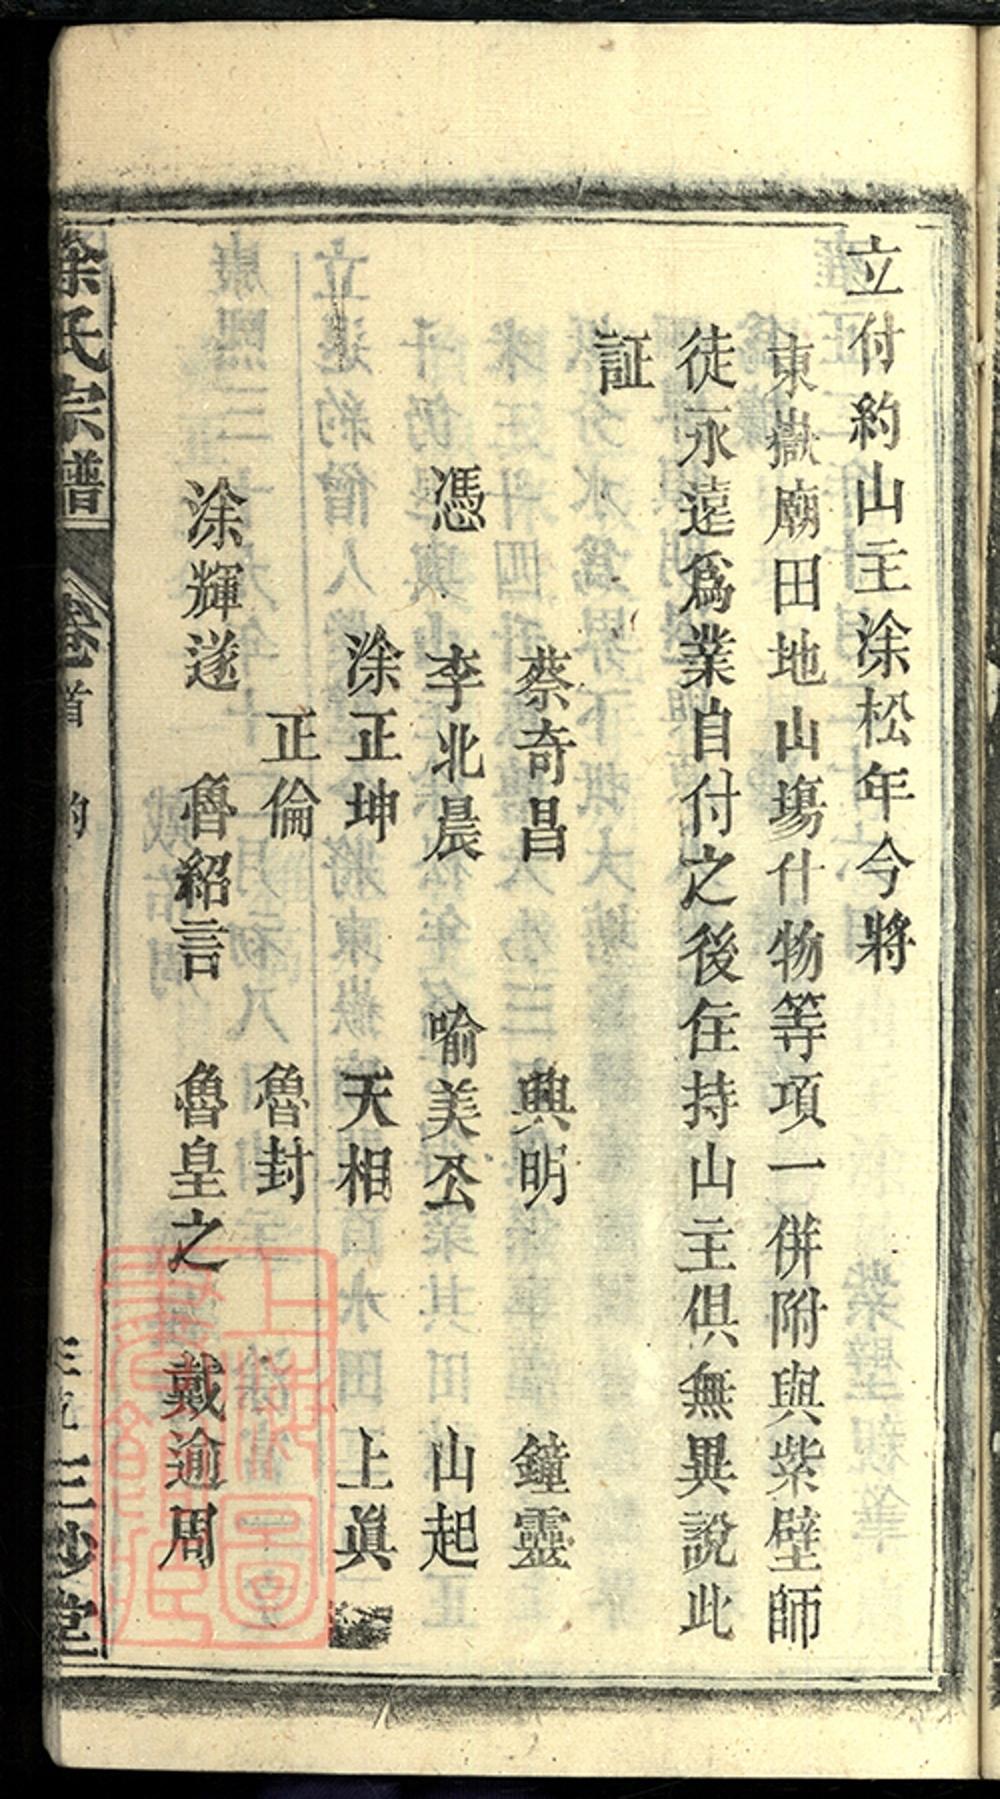 立付約山主涂松年今將
東嶽廟田地山塲什物等項一併附與紫壁師
徒永遠爲業自付之後住持山主俱無異說此
証
蔡奇昌　興明　鐘靈
憑　李北晨　喻美公　山起
涂正坤　天相　上眞
正倫　魯封
涂輝遂　魯紹言　魯皇之　戴逾周
涂氏宗譜　卷首　約　三妙堂
上海圖書館藏